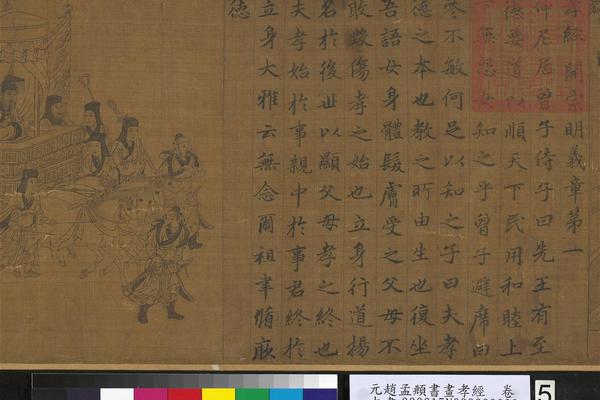 孝經開宗明義章第一
仲尼居曾子侍子曰先王有至
德要道以順天下民用和睦上
下無怨女知之乎曾子避席曰
參不敏何足以知之子曰夫孝
德之本也教之所由生也復坐
吾語女身體髮膚受之父母不
敢毀傷孝之始也立身行道揚
名於後世以顯父母孝之終也
夫孝始於事親中於事君終於
立身大雅云無念爾祖聿脩厥
德
元趙孟頫書畫孝經 卷
5